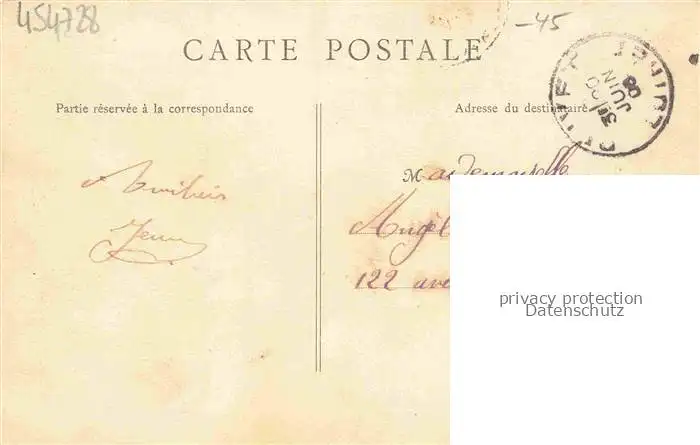 454728
-45
CARTE POSTALE
Partie réservée à la correspondance
Adresse du destinataire
JUIN
08
Mademoiselle
Angèl
122 ave
privacy protection
Datenschutz